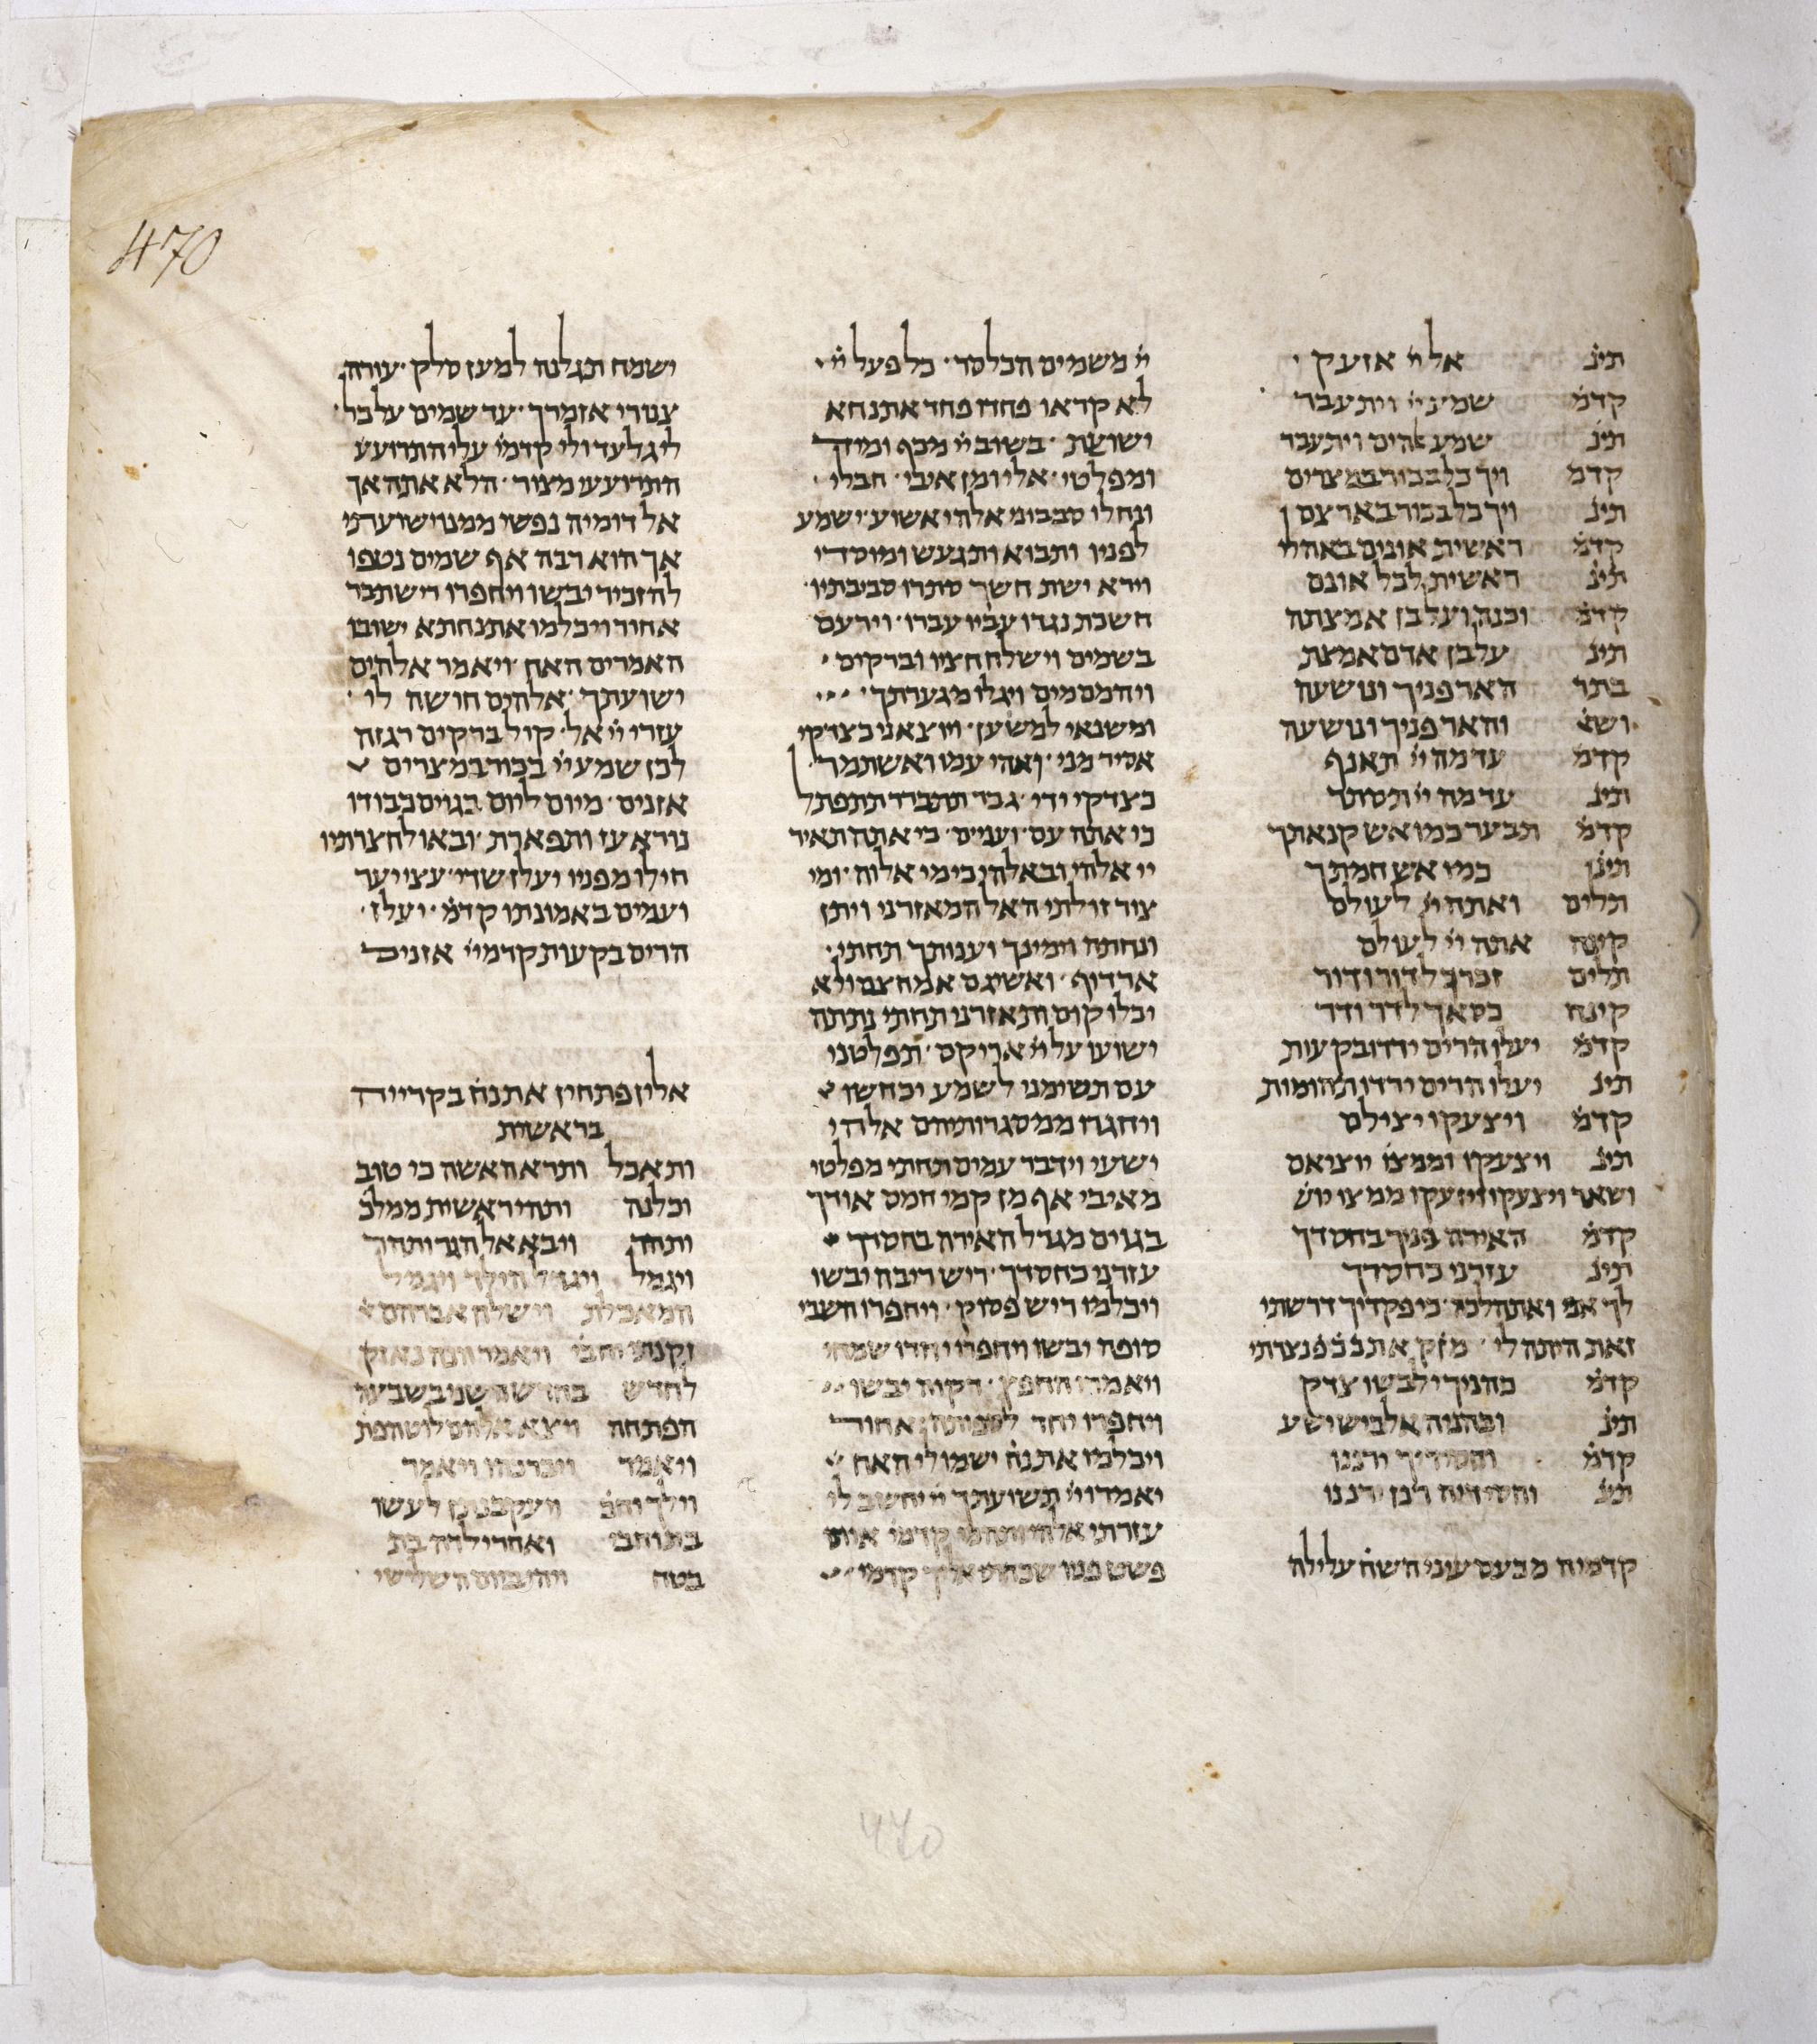 470
תינ אל יי אזעק
קדמ שמע יי ויתעבר
תינ שמע אלהים ויתעבר
קדמ ויך כל בכור במצרים
תינ ויך כל בכור בארצם
קדמ ראשית אונים באהלי
תינ ראשית לכל אונם
קדמ וכנה ועל בן אמצתה
תינ על בן אדם אמצת
בתר האר פניך ונושעה
ושא והאר פניך ונושעה
קדמ עד מה יי תאנף
תינ עד מה יי תסתר
קדמ תבער כמו אש קנאתך
תינ כמו אש חמתך
תלים ואתה יי לעולם
קינה אתה יי לעולם
תלים זכרך לדור ודור
קינה כסאך לדר ודר
קדמ יעלו הרים ירדו בקעות
תינ יעלו הרים ירדו תהומות
קדמ ויצעקו יצילם
תינ ויצעקו וממצו יוציאם
ושאר ויצעקו ויזעקו ממצו יוש
קדמ האירה פניך בחסדך
תינ עזרני כחסדך
לך אני ואתהלכה כי פקדיך דרשתי
זאת היתה לי
קדמ כהניך ילבשו צדק
תינ וכהניה אלביש ישע
קדמ ירננו
תינ וחסידיה רנן ירננו
קדמיה מכעס עיני השה עלילה
יי משמים הכל סר כל פעל יי
לא קראו פחדו פחד אתנחא
ישועת בשוב יי מכף ומיד
ומפלטי אלי ומן איבי חבלי
ונחלי סבבוני אלהי אשוע ישמע
לפניו ותבוא ותגעש ומוסדי
וירא ישת חשך סתרו סביבתיו
חשכת נגדו עביו עברו וירעם
בשמים וישלח חציו וברקים
ויחמם מים ויגלו מגערתך
ומשנאי למשען ויוצאני כצדקי
אסיר מני ואהי עמו ואשתמר
כצדקי ידי גבר תתברר תתפתל
כי אתה עם ועינים כי אתה תאיר
יי אלהי ובאלהי כי מי אלוה ומי
צור זולתי האל המאזרני ויתן
ונחתה וימינך וענותך תחתי
ארדוף ואשיגם אמחצם ולא
יכלו קום ותאזרני תחתי נתתה
ישועו על יי אריקם תפלטני
עם תשימני לשמע יכחשו
ויחגרו ממסגרותיהם אלהי
ישעי וידבר עמים תחתי מפלטי
מאיבי אף מן קמי חמס אודך
בגוים מגדל האירה בחסדך
עזרני כחסדך ריש ריבה יבשו
ויכלמו ריש פסוק ויחפרו חשבי
סופה יבשו ויחפרו יחדו שמחי
ויאמרו החפץ דקוה יבשו
ויחפרו יחד לספותה אחור
ויכלמו אתנח ישמו לי האח
יאמרו יי תשועתך יי יחשב לי
עזרתי קדמי
פשט פניו קדמי
ישמח תגלנה למעז סלק עורה
צורי אזמרך עד שמים על כל
ליגלעד ולי קדמי עלי התרועע
התרועעי מצור הלא אתה אך
אל דומיה נפשי ממנו ישועתי
אך הוא רבה אף שמים נטפו
להזכיר יבשו ויחפרו רישתבר
אחור ויכלמו אתנחתא ישובו
האמרים האח ויאמר אלהים
ישועתך אלהים חושה לי
עזרי יי אל קול ברקים רגזה
לכן שמע יי בכור במצרים
אזנים מיום ליום בגוים כבודו
נורא עז ותפארת ובאו לחצרותיו
חילו מפניו ועלז שדי עצי יער
ועמים באמונתו קדמ ועלז
הרים בקעות קדמי אזנים
אלין פתחין אתנח בקרייה
בראשית
ותאכל ותרא האשה כי טוב
וכלנה ותהי ראשית ממלכ
ותהר ויבא אל הגר ותהר
ויגמל ויגדל הילד ויגמל
המאכלת וישלח אברהם
זקנתי
לחדש
הפתחה
ויאמר ויאמר
לעשו
ואחר ילדה בת
בטח ויהי ביום השלישי
470